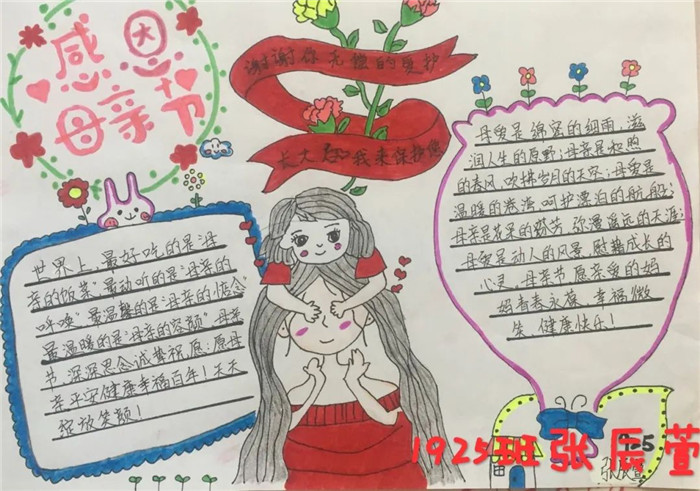 感恩
母亲节
谢谢你无惶的更护
长大 我来保护您
世界上,最好吃的是"母
亲的饭菜"最动听的是"母亲的
呼唤"最温馨的是"母亲的惦念"
最温暖的是"母亲的容颜"母亲
节,深深思念诚挚祝愿:愿母
亲平安健康幸福百年!天天
绽放笑颜!
母爱是绵密的细雨,滋
润人生的原野;母亲是和煦
的春风,吹拂岁月的天空;母爱是
温暖的港湾,呵护漂泊的航船;
母亲是花朵的芬芳,弥漫遥远的天涯;
母爱是动人的风景,慰藉成长的
心灵。母亲节愿亲爱的妈
妈青春永葆、幸福微
笑、健康快乐!
1925班张辰萱